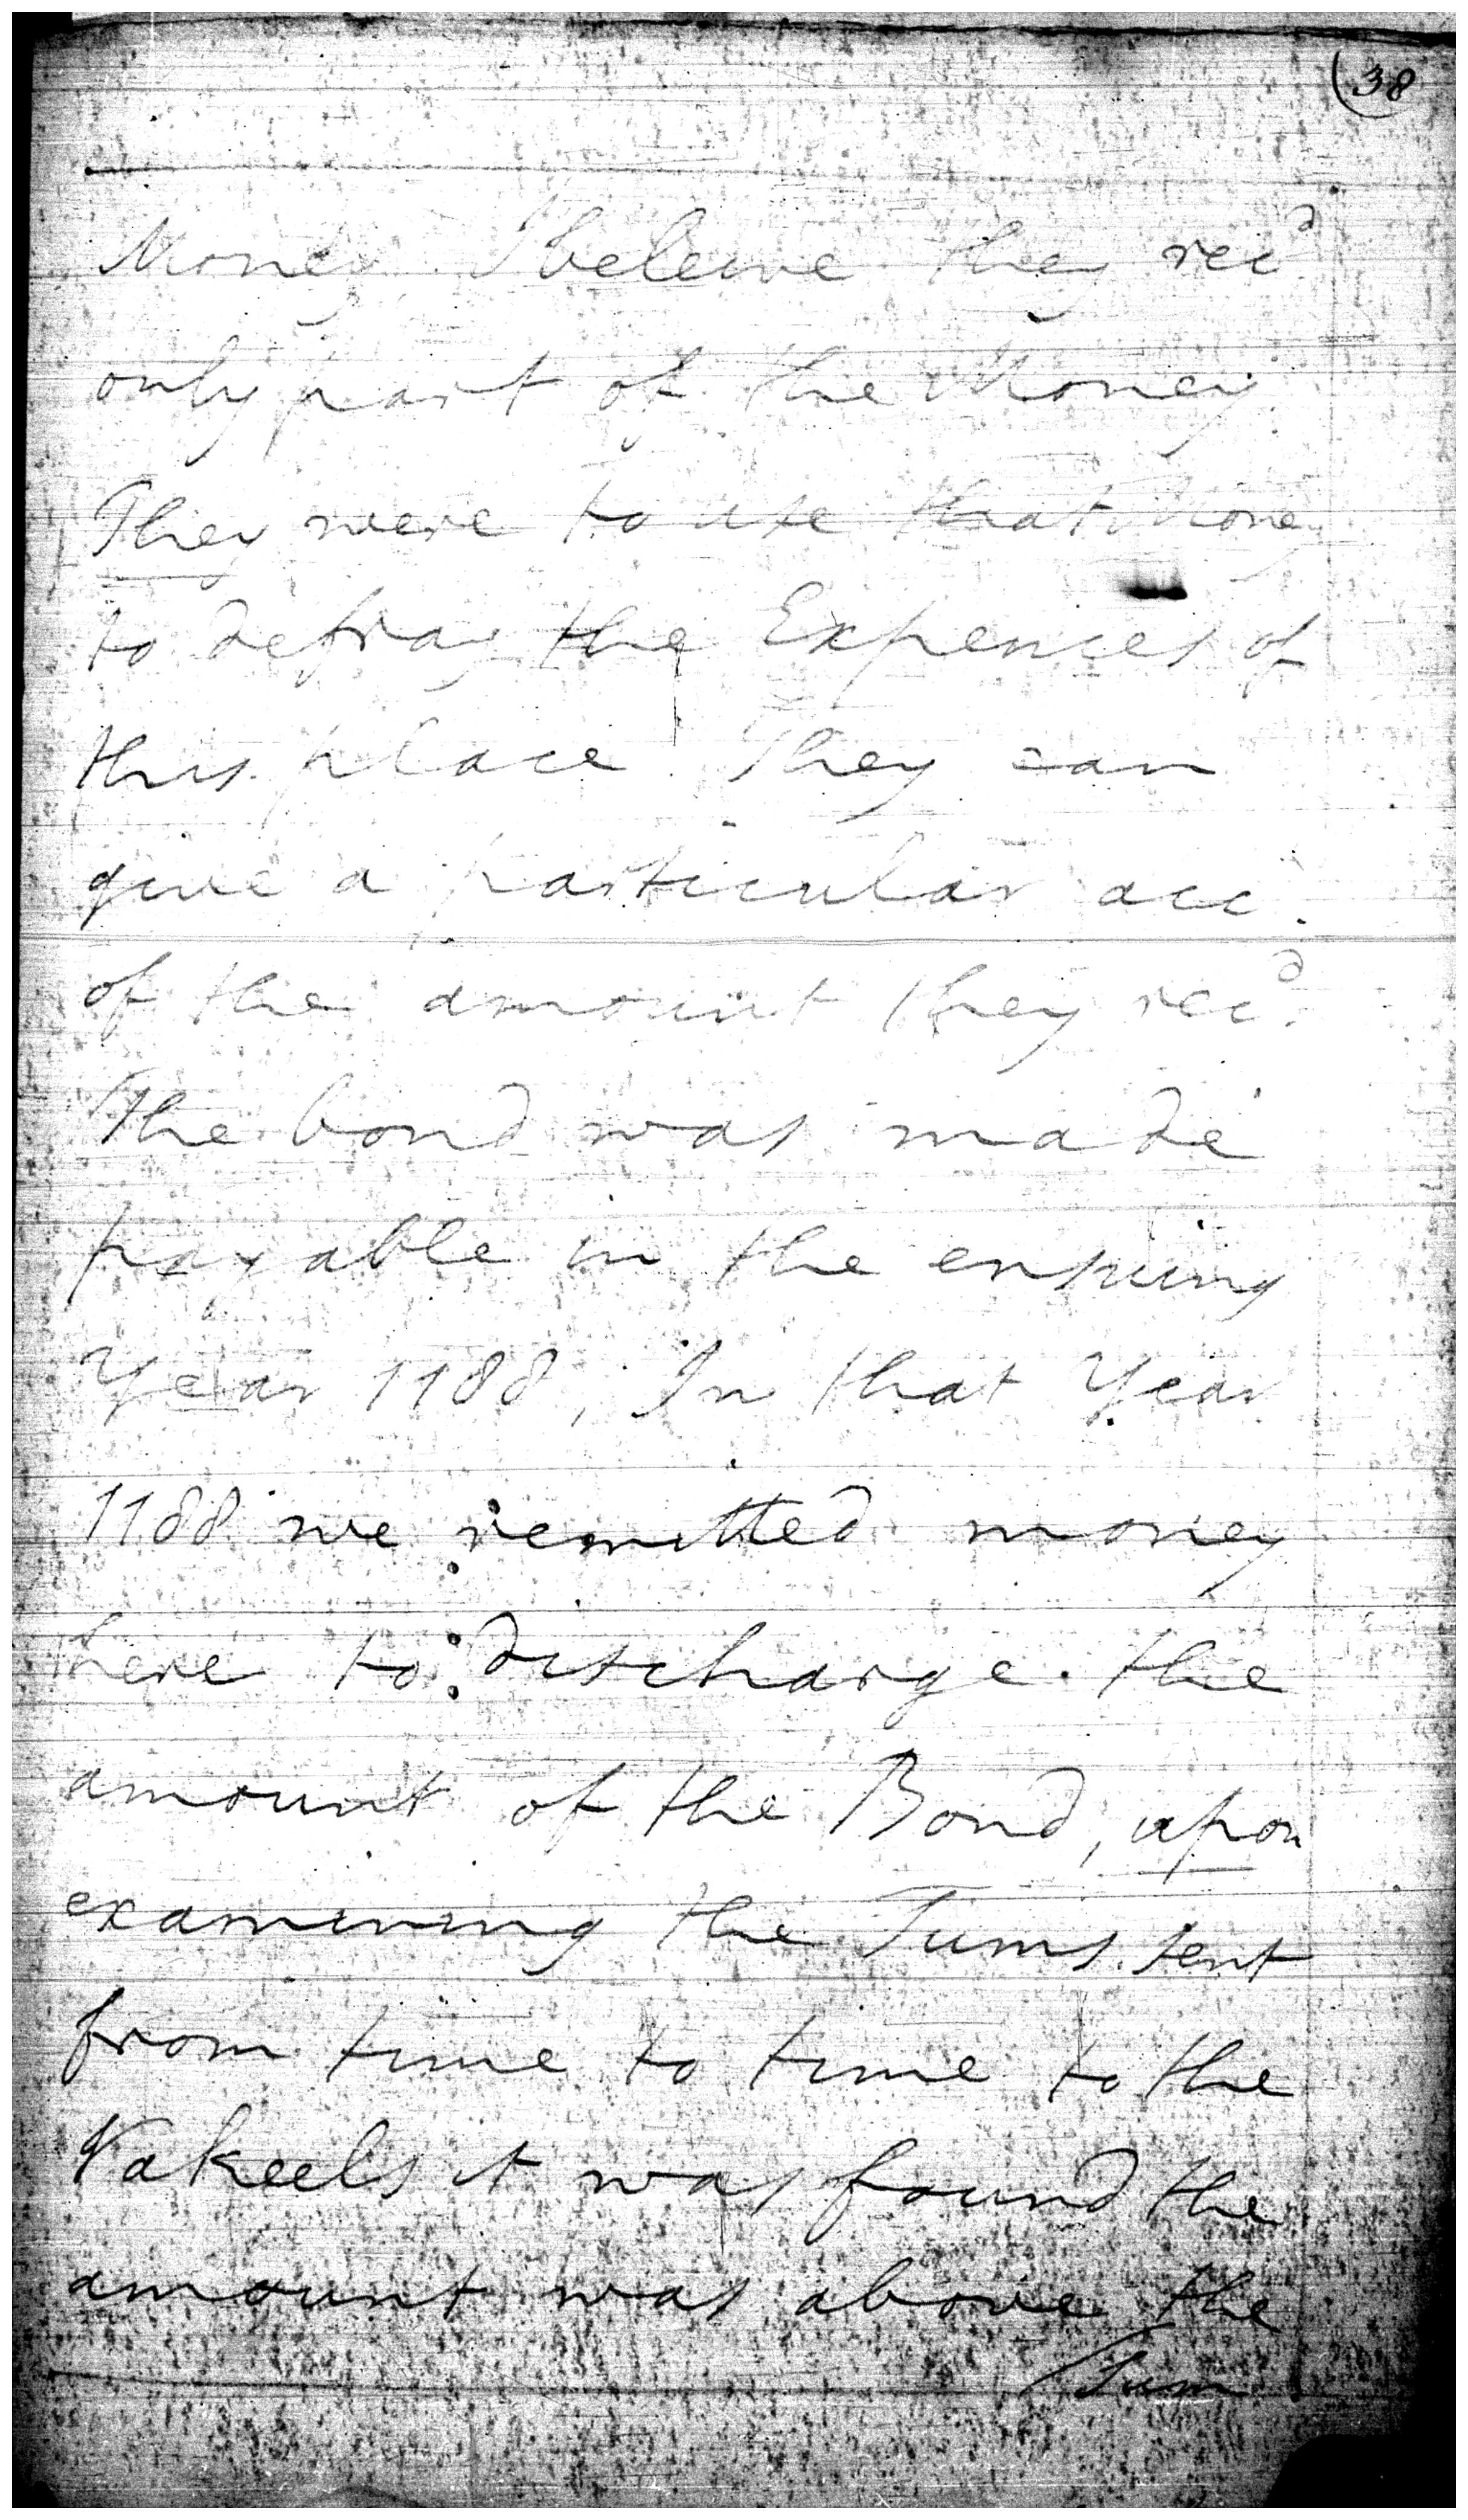 38
Money I beleive they rec.d
only part of the Money
They were to use that Money
to defray the Expences of
this place. They can
give a particular acc.
of the amount they rec.d
The bond was made
payable in the ensuing
Year 1188, In that Year
1188 we remitted money
here to discharge the
amount of the Bond, upon
examining the Sums sent
from time to time to the
Vakeels it was found the
amount was above the
Sum